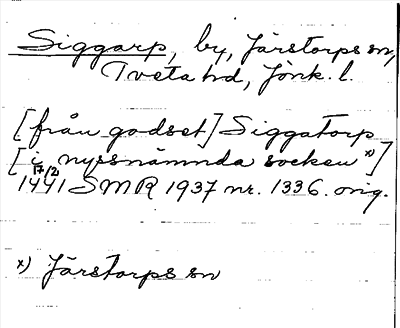 Siggarp, by, Järstorps sn,
Tveta hd, Jönk. l.
[från godset] Siggatorp
[i nyssnämnda socken x)]
17/2 1441 SMR 1937 nr. 1336. orig.
x) Järstorps sn